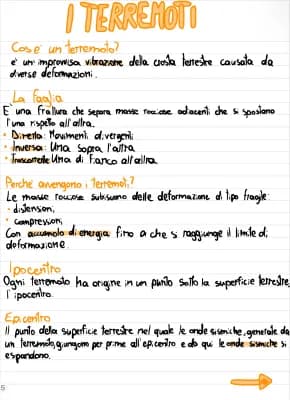 I TERREMOTI
Cos'è un terremoto?
è un'improvvisa vibrazione della crosta terrestre causata da
diverse deformazioni.
La faglia
E' una frattura che separa masse rocciose adiacenti che si spostano
l'una rispetto all'altra.
• Diretta: Movimenti divergenti
• Inversa: Una sopra l'altra
• Trascorrente Una di fianco all'altra
Perché avvengono i terremoti?
Le masse rocciose subiscono delle deformazione di tipo fragile:
• distensioni,
• compressioni,
Con accumulo di energia fino a che si raggiunge il limite di
deformazione.
Ipocentro
Ogni terremoto ha origine in un punto sotto la superficie terrestre,
l'ipocentro.
Epicentro
Il punto della superficie terrestre nel quale le onde sismiche, generate da
un terremoto, giungono per prime all'epicentro e da qui le onde sismiche si
espandono.
5